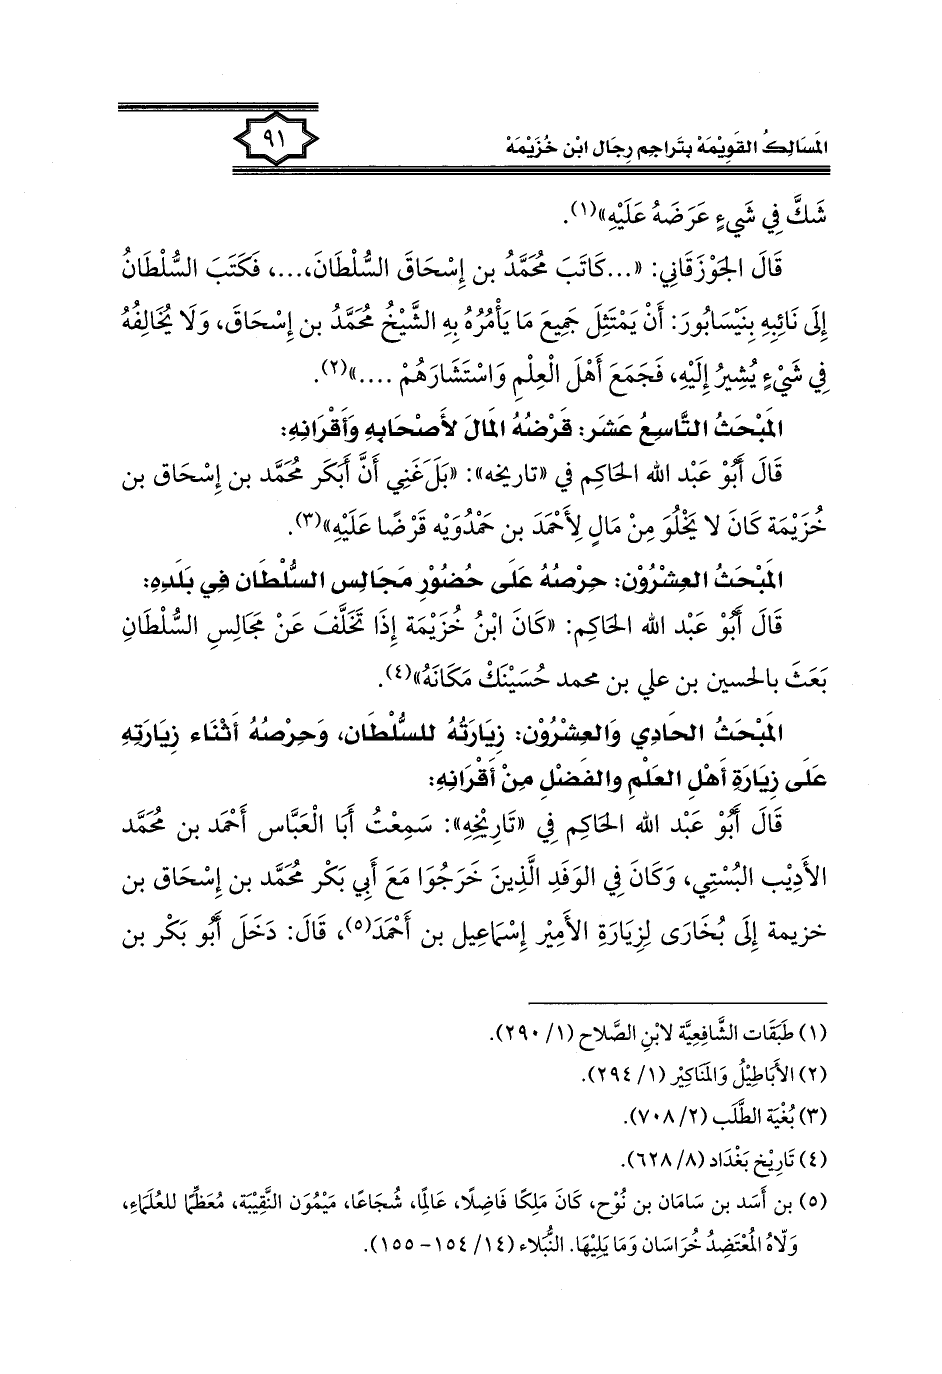 المَسَالِكُ القَوِيْمَهْ بِتَراجِم رِجَال ابْن خُزَيْمَهْ
٩١
شَكَّ فِي شَيءٍ عَرَضَهُ عَلَيْهِ»(١).
قَالَ الجَوْزَقَاني: «...كَاتَبَ مُحَمَّدُ بن إِسْحَاقَ السُّلْطَانَ،...، فَكَتَبَ السُّلْطَانُ
إِلَى نَائِبِهِ بِنَيْسَابُورَ: أَنْ يَمْتَثِلَ جَمِيعَ مَا يَأْمُرُهُ بِهِ الشَّيْخُ مُحَمَّدُ بن إِسْحَاقَ، وَلَا يُخَالِفُهُ
فِي شَيْءٍ يُشِيرُ إِلَيْهِ، فَجَمَعَ أَهْلَ الْعِلْمِ وَاسْتَشَارَهُمْ ....»(٢).
المَبْحَثُ التَّاسِعُ عَشَر: قَرْضُهُ المَالَ لأَصْحَابِهِ وَأَقْرَانِهِ:
قَالَ أَبُوْ عَبْد الله الحَاكِم في «تاريخه»: «بَلَغَنِي أَنَّ أَبَكَر مُحَمَّد بن إِسْحَاق بن
خُزَيْمَة كَانَ لا يَخْلُوَ مِنْ مَالٍ لِأَحْمَدَ بن حَمْدُوَيْه قَرْضًا عَلَيْهِ»(٣).
المَبْحَثُ العِشْرُوْن: حِرْصُهُ عَلَى حُضُوْرِ مَجَالِس السُّلْطَان فِي بَلَدِهِ:
قَالَ أَبُوْ عَبْد الله الحَاكِم: «كَانَ ابْنُ خُزَيْمَة إِذَا تَخَلَّفَ عَنْ مَجَالِسِ السُّلْطَانِ
بَعَثَ بالحسين بن علي بن محمد حُسَيْنَكْ مَكَانَهُ»(٤).
المَبْحَثُ الحَادِي وَالعِشْرُوْن: زِيَارَتُهُ للسُّلْطَان، وَحِرْصُهُ أَثْنَاء زِيَارَتِهِ
عَلَى زِيَارَةِ أَهْلِ العَلْمِ والفَضْلِ مِنْ أَقْرَانِهِ:
قَالَ أَبُوْ عَبْد الله الحَاكِم فِي «تَارِيْخِهِ»: سَمِعْتُ أَبَا الْعَبَّاس أَحْمَد بن مُحَمَّد
الأَدِيْب البُسْتِي، وَكَانَ فِي الوَفَد الَّذِينَ خَرَجُوَا مَعَ أَبِي بَكْر مُحَمَّد بن إِسْحَاق بن
خزيمة إِلَى بُخَارَى لِزِيَارَةِ الأَمِيْر إِسْمَاعِيل بن أَحْمَدَ(٥)، قَالَ: دَخَلَ أَبُو بَكْر بن
(١) طَبَقَات الشَّافِعِيَّة لابْنِ الصَّلاح (١/ ٢٩٠).
(٢) الأَبَاطِيْلُ وَالمَنَاكِيْر (١/ ٢٩٤).
(٣) بُغْيَة الطَّلَب (٢/ ٧٠٨).
(٤) تَارِيْخ بَغْدَاد (٨/ ٦٢٨).
(٥) بن أَسَد بن سَامَان بن نُوْح، كَانَ مَلِكًا فَاضِلًا، عَالِمًا، شُجَاعًا، مَيْمُوَن النَّقِيْبَة، مُعَظِّمًا للعُلَمَاءِ،
وَلّاهُ المُعْتَضِدُ خُرَاسَان وَمَا يَلِيْهَا. النُّبَلاء (١٤/ ١٥٤-١٥٥).